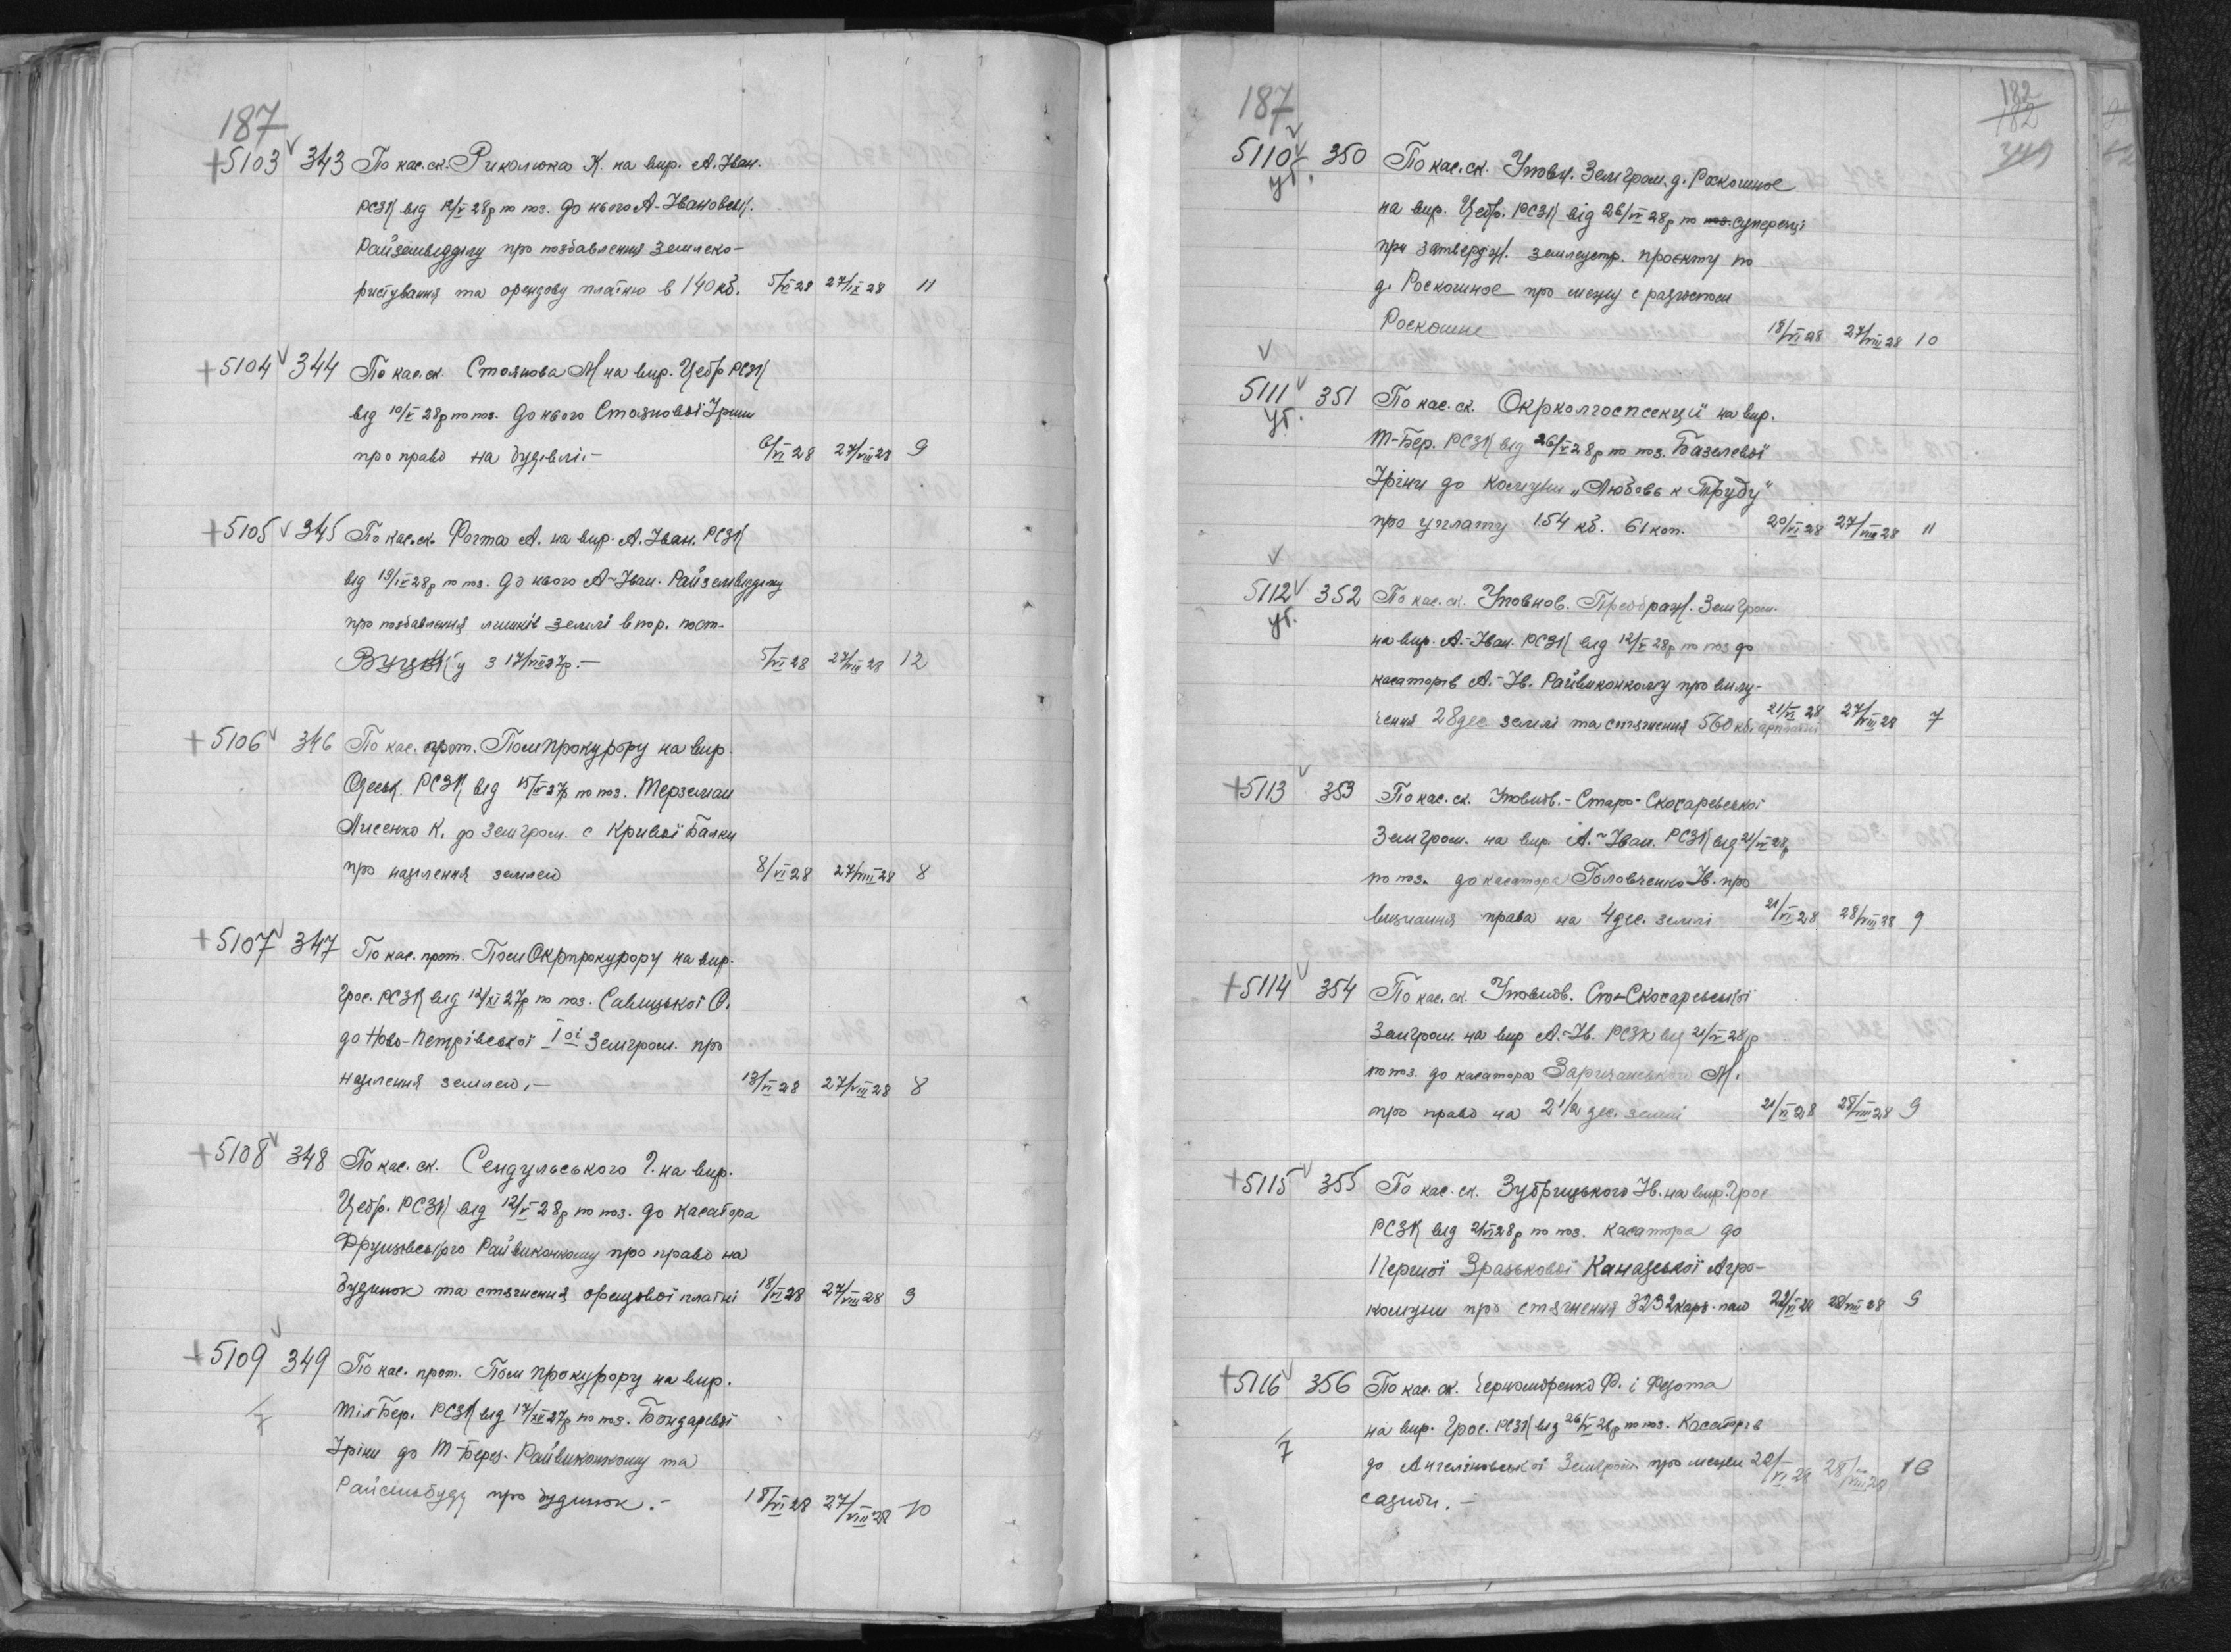 187
+5103 v 343 По кас. ск. Риколюка К. на вир. А. Іван.
РСЗК від 12/V 28р по поз. до нього А-Івановськ.
Райземвідділу про позбавлення землеко-
ристування та орендову платню в 140 кб. 5/VI 28 27/IX 28 11
+5104 v 344 По кас. ск. Стоянова М на вир. Цебр РСЗК
від 10/V 28р по поз. до нього Стоянової Ірини
про право на будівлі.- 6/VI 28 27/VIII 28 9
+5105 v 345 По кас. ск. Фогта А. на вир. А. Іван. РСЗК
від 19/IV 28р по поз. до нього А-Іван. Райземвідділу
про позбавлення лишків землі в пор. пост.
ВУЦВК'у з 17/VIII 27р.- 5/VI 28 27/VIII 28 12
+5106 v 346 По кас. прот. Помпрокурору на вир.
Одеськ. РСЗК від 15/XI 27р по поз. Мерземан
Лисенко К. до Земгром. с Кривої Балки
про наділення землею 8/VI 28 27/VIII 28 8
+5107 v 347 По кас. прот. Пом Окрпрокурору на вир.
Грос. РСЗК від 12/XI 27р по поз. Савицької О.
до Ново-Петрівської I ої Земгром. про
наділення землею.- 13/VI 28 27/VIII 28 8
+5108 v 348 По кас. ск. Сендульського Г. на вир.
Цебр. РСЗК від 12/V 28р по поз. до касатора
Фрунзовського Райвиконкому про право на
будинок та стягнення орендової платні 18/VI 28 27/VIII 28 9
+5109 v 349 По кас. прот. Пом прокурору на вир.
Тіл Бер. РСЗК від 17/XII 27р по поз. Бондаревої
Іріни до Т-Берез. Райвиконкому та
Райсільбуду про будинок.- 18/VI 28 27/VIII 28 10
187
182
182
349
5110 v 350 По кас. ск. Уповн. Земгром. д. Роскошное
уб. на вир. Цебр. РСЗК від 26/VI 28р по поз. суперечці
при затвердж. землеустр. проєкту по
д. Роскошное про межу с разъєтом
Роскошне 18/VI 28 27/VIII 28 10
5111 v 351 По кас. ск. Окрколгоспсекції на вир.
уб. Т-Бер. РСЗК від 26/V 28р по поз. Базелевої
Іріни до комуни „Любовь к Труду"
про уплату 154 кб. 61 коп. 20/VI 28 27/VIII 28 11
5112 v 352 По кас. ск. Уповнов. Преображ. Земгром.
уб. на вир. А.-Іван. РСЗК від 12/V 28р по поз до
касаторів А.-Ів. Райвиконкому про вилу-
чення 28 дес землі та стягнення 560 кб. арплатні 21/VI 28 27/VIII 28 7
+5113 v 353 По кас. ск. Уповнов.-Старо-Скосаревської
Земгром. на вир. А.-Іван. РСЗК від 21/IV 28р
по поз. до касатора Головченко Ів. про
визнання права на 4 дес. землі 21/VI 28 28/VIII 28 9
+5114 v 354 По кас. ск. Уповнов. Ст-Скосаревської
Земгром. на вир А.-Ів. РСЗК від 21/V 28р
по поз. до касатора Заричанського М.
про право на 2 1/2 дес. землі 21/VI 28 28/VIII 28 9
+5115 v 355 По кас. ск. Зубрицького Ів. на вир. Грос
РСЗК від 2/VI 28р по поз. касатора до
Першої Зразькової Канадської Агро-
комуни про стягнення 3232 карб. паю 22/VI 28 28/VIII 28 9
+5116 v 356 По кас. ск. Чорноморенко Ф. і Федота
на вир. Грос. РСЗК від 26/IV 28р по поз. Касаторів
до Ангеліновської Земгром про межи 22/VI 28 28/VIII 28 10
садиби.-